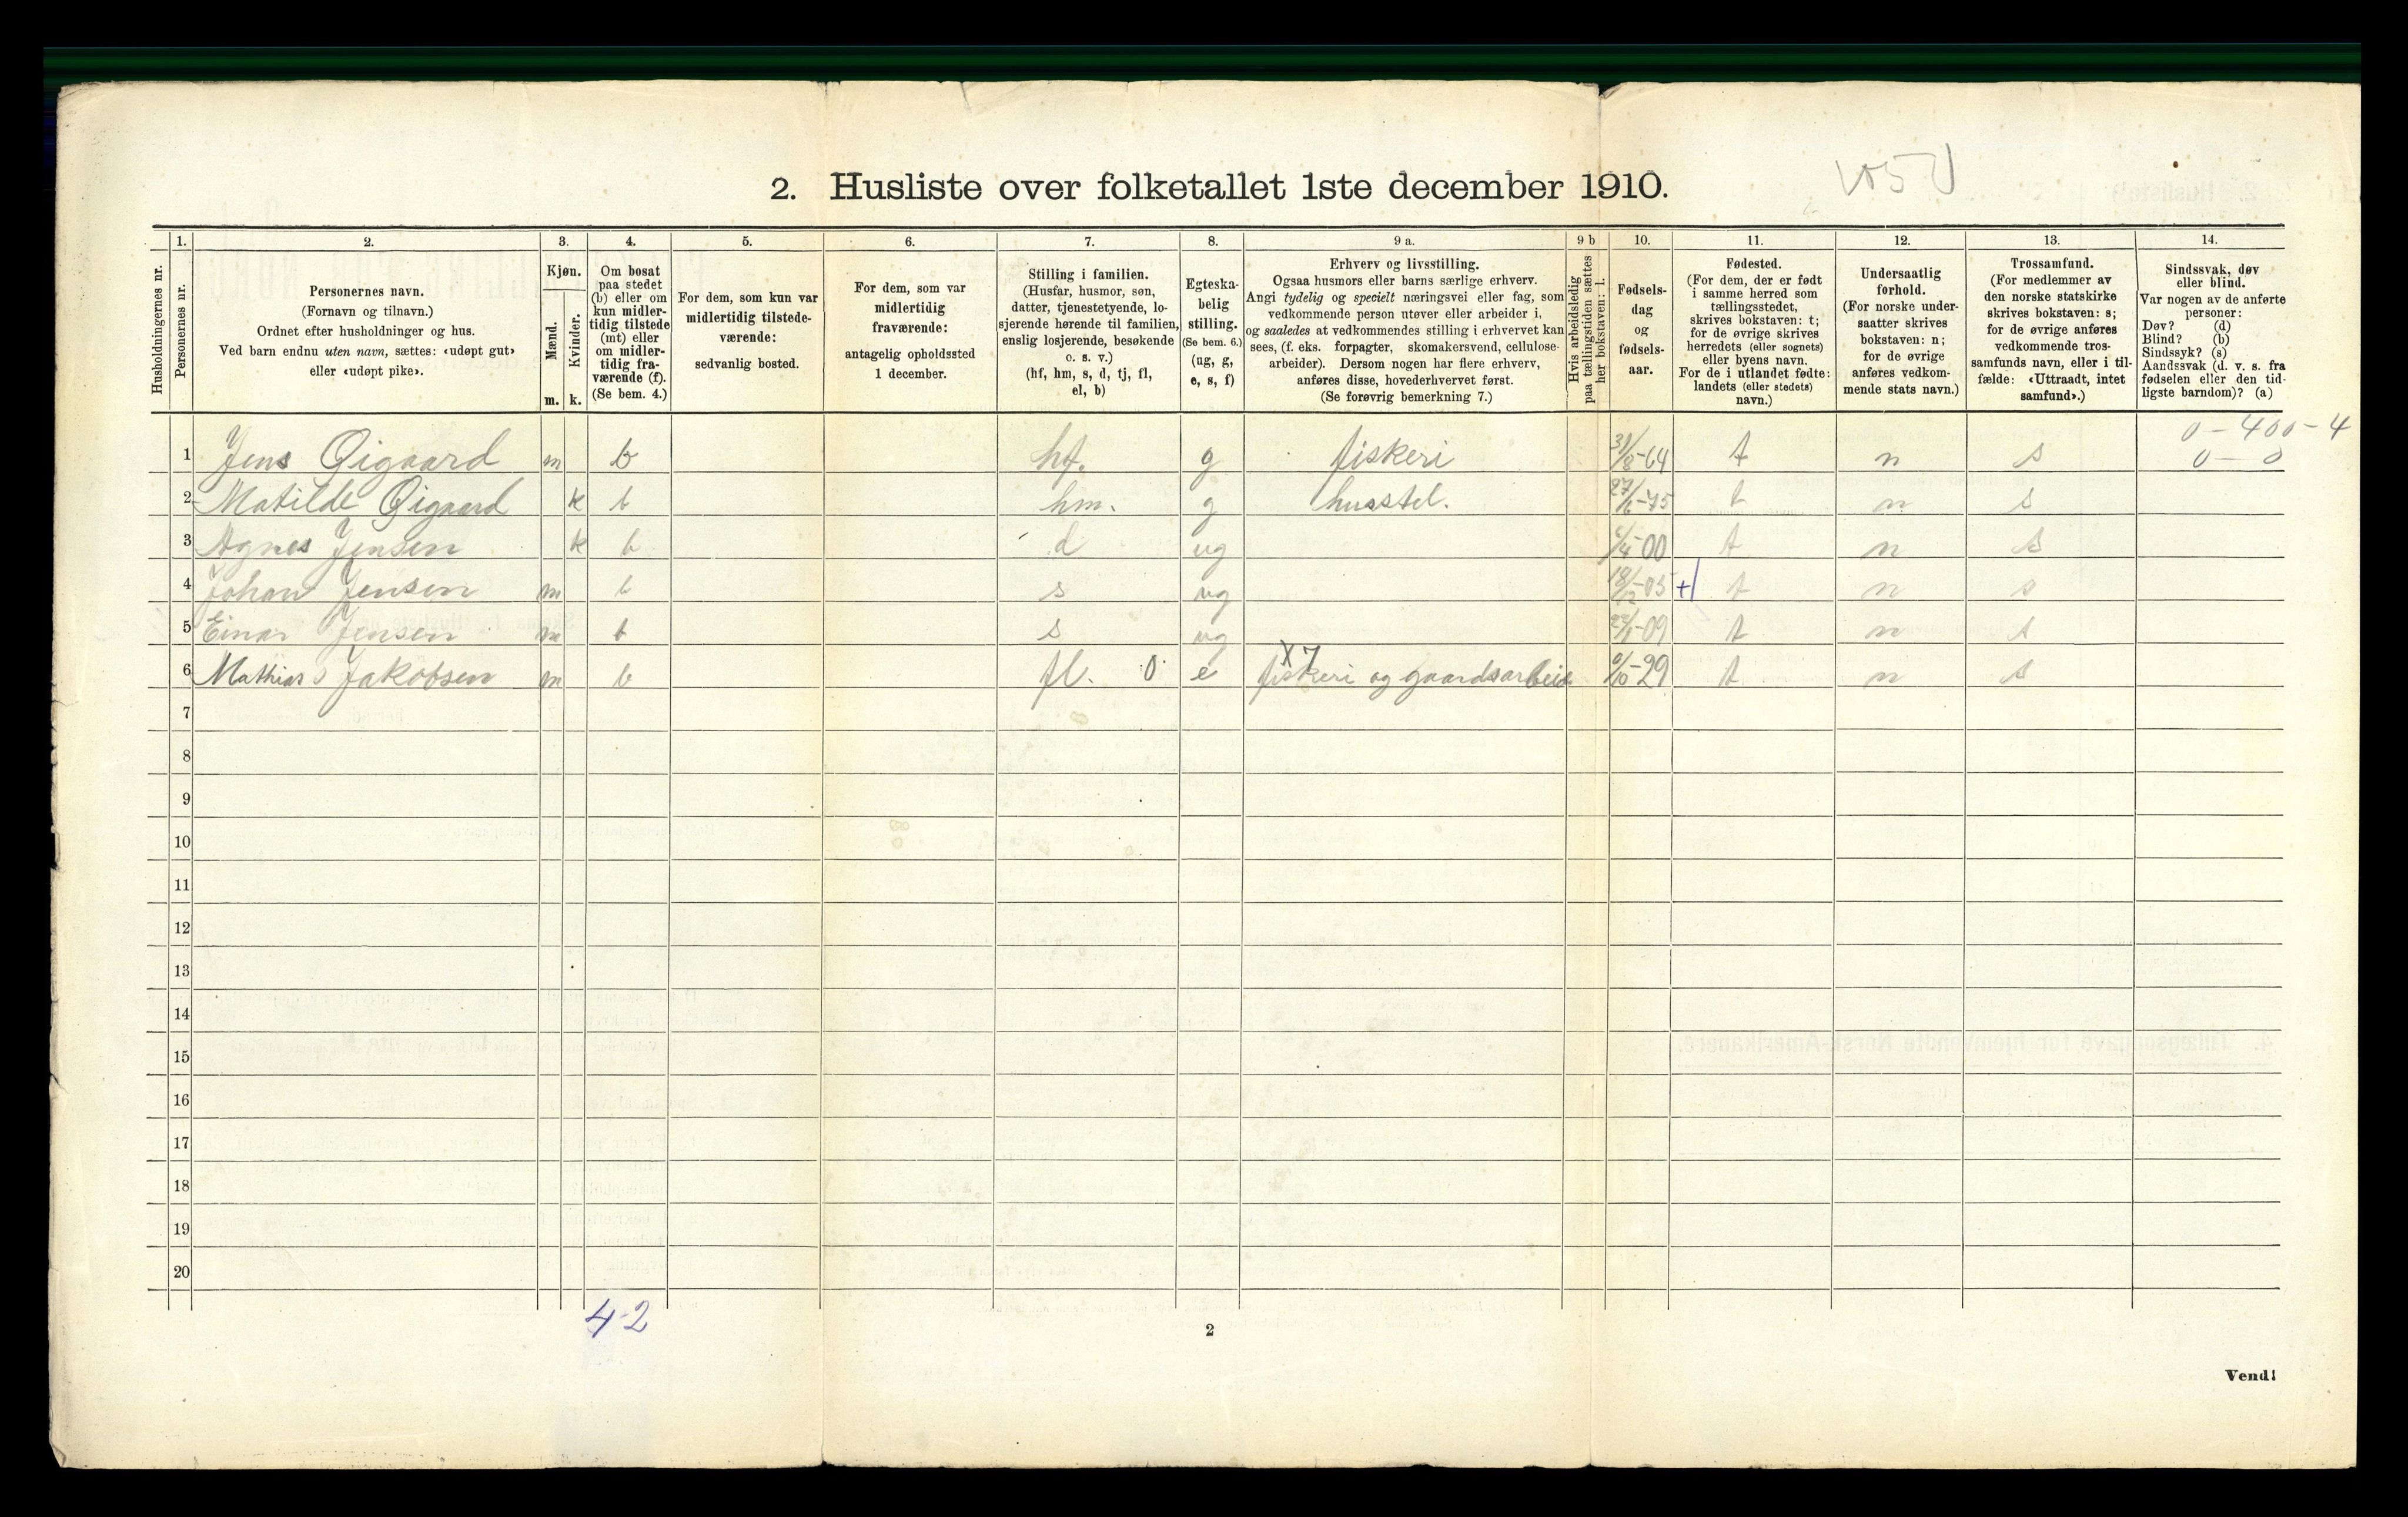 2. Husliste over folketallet 1ste december 1910.
Husholdningernes nr.
1. Personernes nr.
2. Personernes navn.
(Fornavn og tilnavn.)
Ordnet efter husholdninger og hus.
Ved barn endnu uten navn, sættes: «udøpt gut»
eller «udøpt pike».
3. Kjøn.
Mænd. m.
Kvinder. k.
4. Om bosat
paa stedet
(b) eller om
kun midler-
tidig tilstede
(mt) eller
om midler-
tidig fra-
værende (f).
(Se bem. 4.)
5. For dem, som kun var
midlertidig tilstede-
værende:
sedvanlig bosted.
6. For dem, som var
midlertidig
fraværende:
antagelig opholdssted
1 december.
7. Stilling i familien.
(Husfar, husmor, søn,
datter, tjenestetyende, lo-
sjerende hørende til familien,
enslig losjerende, besøkende
o. s. v.)
(hf, hm, s, d, tj, fl,
el, b)
8. Egteska-
belig
stilling.
(Se bem. 6.)
(ug, g,
e, s, f)
9 a. Erhverv og livsstilling.
Ogsaa husmors eller barns særlige erhverv.
Angi tydelig og specielt næringsvei eller fag, som
vedkommende person utøver eller arbeider i,
og saaledes at vedkommendes stilling i erhvervet kan
sees, (f. eks. forpagter, skomakersvend, cellulose-
arbeider). Dersom nogen har flere erhverv,
anføres disse, hovederhvervet først.
(Se forøvrig bemerkning 7.)
9 b Hvis arbeidsledig
paa tællingstiden sættes
her bokstaven: l.
10. Fødsels-
dag
og
fødsels-
aar.
11. Fødested.
(For dem, der er født
i samme herred som
tællingsstedet,
skrives bokstaven: t;
for de øvrige skrives
herredets (eller sognets)
eller byens navn.
For de i utlandet fødte:
landets (eller stedets)
navn.)
12. Undersaatlig
forhold.
(For norske under-
saatter skrives
bokstaven: n;
for de øvrige
anføres vedkom-
mende stats navn.)
13. Trossamfund.
(For medlemmer av
den norske statskirke
skrives bokstaven: s;
for de øvrige anføres
vedkommende tros-
samfunds navn, eller i til-
fælde: «Uttraadt, intet
samfund».)
14. Sindssvak, døv
eller blind.
Var nogen av de anførte
personer:
Døv? (d)
Blind? (b)
Sindssyk? (s)
Aandssvak (d. v. s. fra
fødselen eller den tid-
ligste barndom)? (a)
0 - 400 - 4
1 Jens Øigaard m b hf. g fiskeri 31/8-64 t n s 0 - 0
2 Matilde Øigaard k b hm. g husstel. 27/6-75 t n s
3 Agnes Jensen k b d ug 6/4-00 t n s
4 Johan Jensen m b s ug 18/12-05 t n s
5 Einar Jensen m b s ug 23/1-09 t n s
X 7
6 Mathias Jakobsen m b fl. 0 e fiskeri og gaardsarbeid /10-29 t n s
7
8
9
10
11
12
13
14
15
16
17
18
19
20
42
2
Vend!